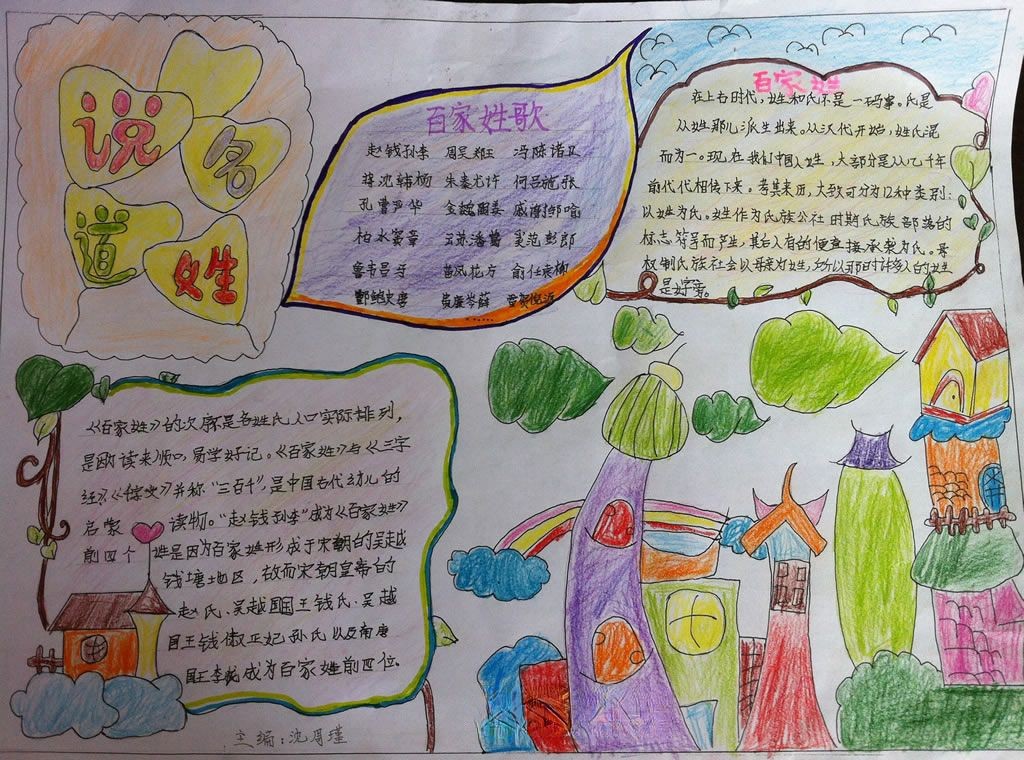 说名
道姓
百家姓歌
赵钱孙李 周吴郑王 冯陈诸卫
蒋沈韩杨 朱秦尤许 何吕施张
孔曹严华 金魏陶姜 戚谢邹喻
柏水窦章 云苏潘葛 奚范彭郎
鲁韦昌马 苗凤花方 俞任袁柳
酆鲍史唐 费廉岑薛 雷贺倪汤
......
百家姓
在上古时代，姓和氏不是一码事。氏是
从姓那儿派生出来。从汉代开始，姓氏混
而为一。现在我们中国人姓，大部分是从几千年
前代代相传下来。考其来历，大致可分为12种类别：
以姓为氏。姓作为氏族公社时期氏族部落的
标志符号而产生，其后人有的便直接承袭为氏。母
权制氏族社会以母亲为姓，所以那时许多人的姓
是女字旁。
《百家姓》的次序是各姓氏人口实际排列，
是因读来顺口，易学好记。《百家姓》与《三字
经》、《千字文》并称“三百千”，是中国古代幼儿的
启蒙读物。“赵钱孙李”成为《百家姓》
前四个姓是因为百家姓形成于宋朝的吴越
钱塘地区，故而宋朝皇帝的
赵氏、吴越国国王钱氏、吴越
国王钱俶正妃孙氏以及南唐
国王李氏成为百家姓前四位。
主编：沈周瑾